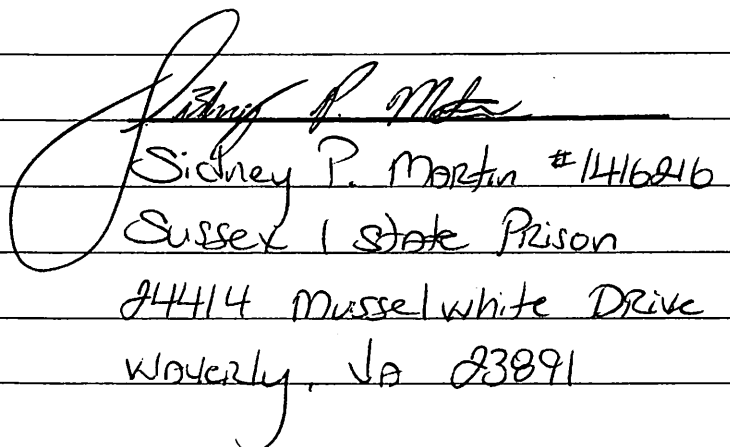 Sidney P. Martin
Sidney P. Martin #1416216
Sussex 1 State Prison
24414 Musselwhite Drive
Waverly, VA 23891